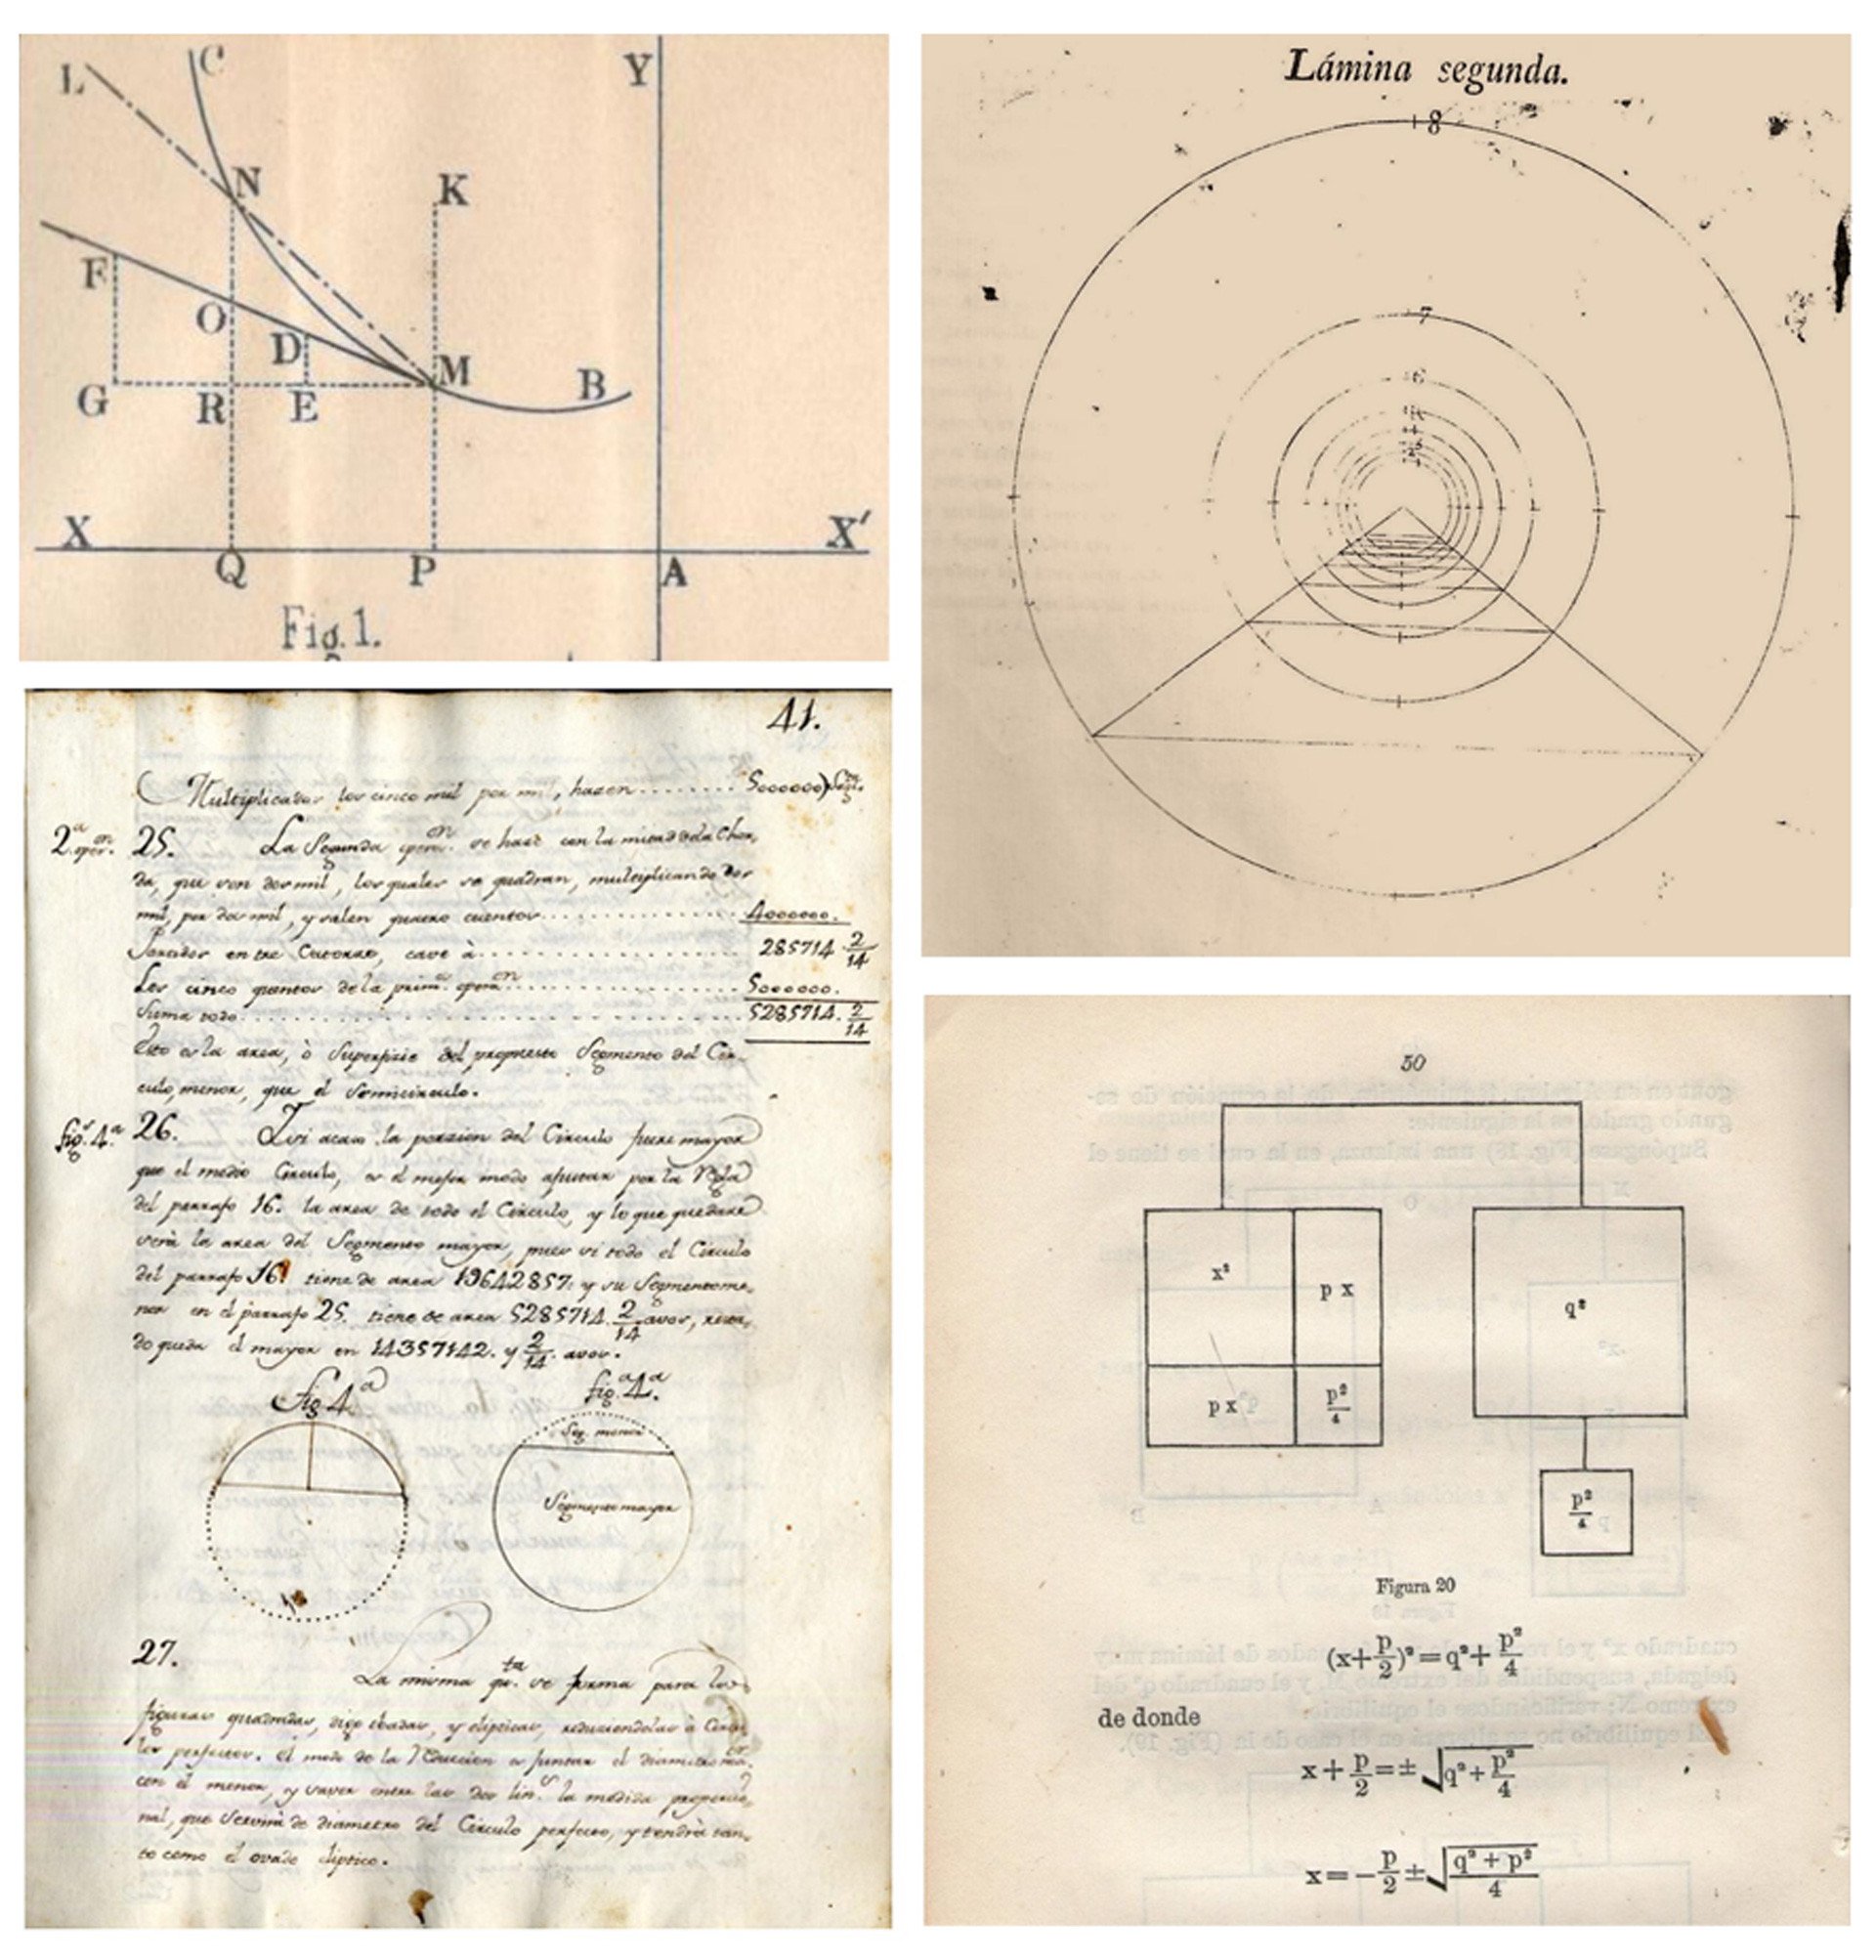 L
C
Y
N
K
F
O
D
M
B
G
R
E
X
X′
Q
P
A
Fig. 1.
Lámina segunda.
8
7
6
4
3
41.
Multiplicados los cinco mil por mil, hazen........ 5000000)
2.ª oper.on 25. La Segunda operon. se hace con la mitad dela Chor,
da, que son dos mil, los quales se quadran, multiplicando dos
mil, por dos mil, y valen quatro cuentos............ 4000000.
Partidos entre Catorze, cave à............ 285714 2/14
Los cinco quentos de la prim.a operon............ 5000000.
Suma todo............ 5285714. 2/14
Esto es la area, ò Superficie del propuesto Segmento del Cir-
culo, menor, que el Semicirculo.
fig.r 4.a 26. I si acaso la porzion del Circulo fuere mayor
que el medio Circulo, es el mejor modo ajustar por la Regla
del parrafo 16. la area de todo el Circulo, y lo que quedare
serà la area del Segmento mayor, pues si todo el Circulo
del parrafo 16. tiene de area 19642857: y su Segmento me,
nor en el parrafo 25. tiene de area 5285714. 2/14 avos, resta,
do queda el mayor en 14357142. y 2/14. avos.
Fig 4a
fig.a 4a.
Seg. menor
Segmento mayor
27.
La misma qta. se forma para las
figuras quadradas, digo obadas, y elipticas, reduciendolas à Circu
los perfectos. el modo de la Reduccion es juntar el diametro ma.or
con el menor, y sacar entre las dos lin.s la medida proporcio,
nal, que Servirà de diametro del Circulo perfecto, y tendrà tan,
to como el ovado eliptico.
50
x²
p x
q²
p x
p²/4
p²/4
Figura 20
(x+p/2)²=q²+p²/4
de donde
x+p/2=±√(q²+p²/4)
x=−p/2±√((q²+p²)/4)